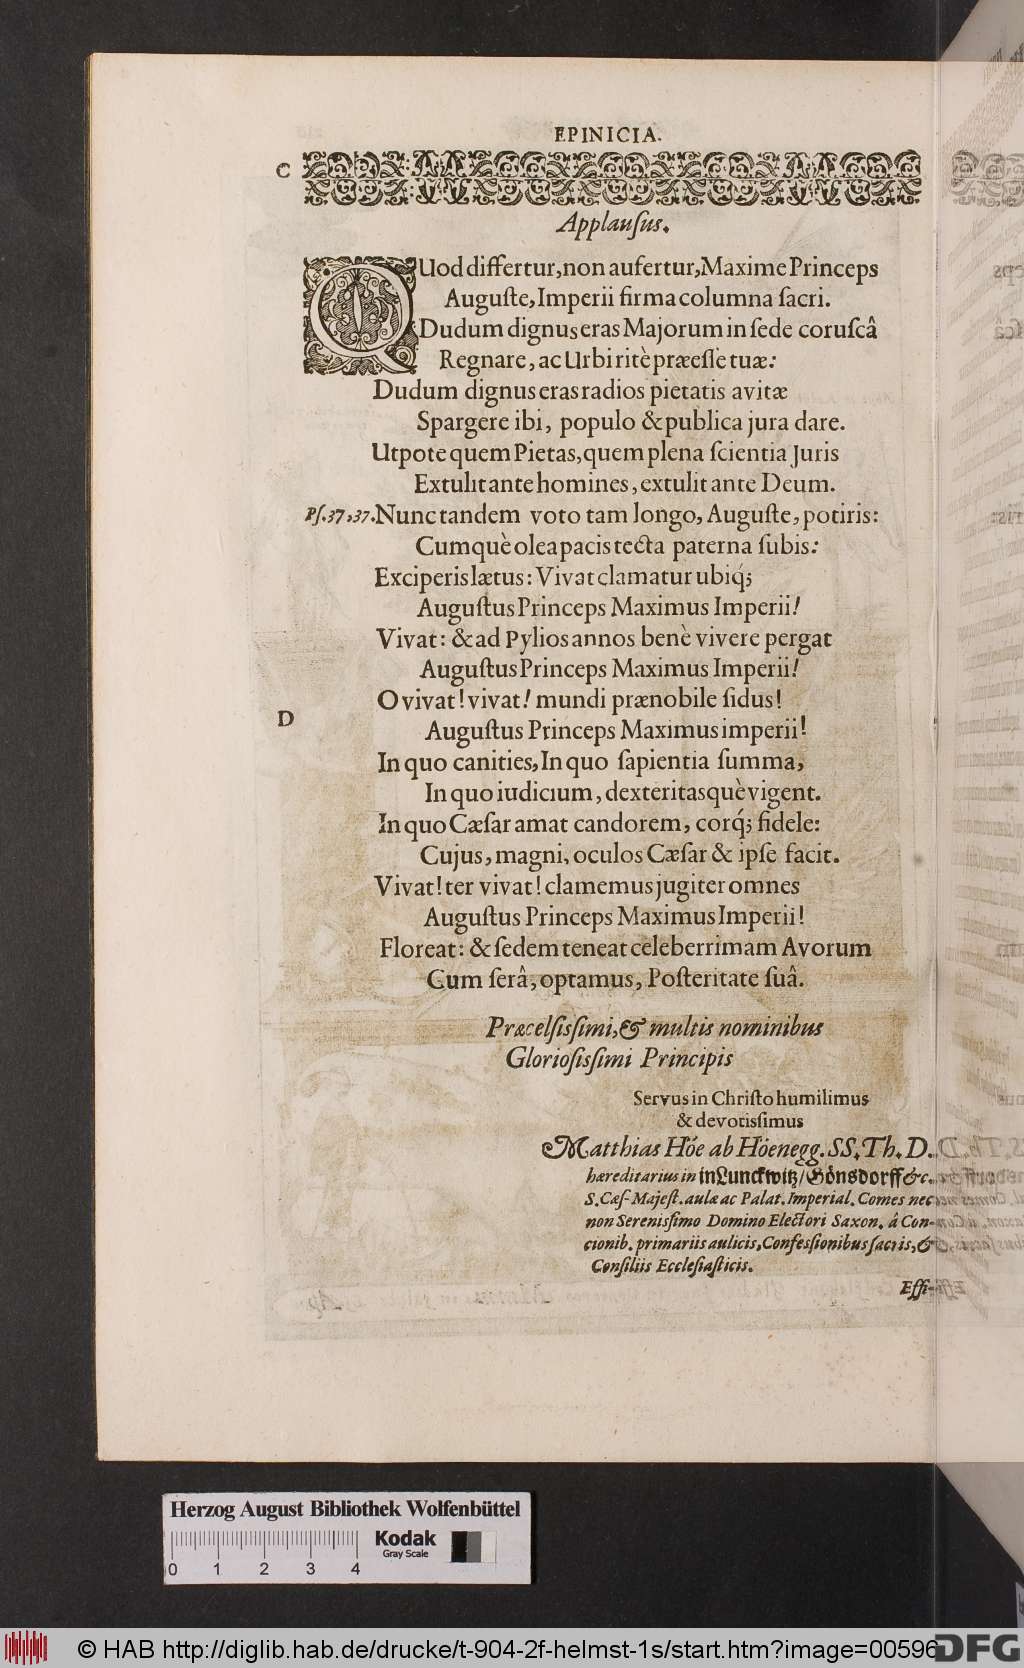 EPINICIA.
C
Applauſus.
QUod differtur, non aufertur, Maxime Princeps
Auguſte, Imperii firma columna ſacri.
Dudum dignus eras Majorum in ſede coruſcâ
Regnare, ac Urbi ritè præeſſe tuæ:
Dudum dignus eras radios pietatis avitæ
Spargere ibi, populo & publica jura dare.
Utpote quem Pietas, quem plena ſcientia Juris
Extulit ante homines, extulit ante Deum.
Pſ. 37, 37. Nunc tandem voto tam longo, Auguſte, potiris:
Cumquè olea pacis tecta paterna ſubis:
Exciperis lætus: Vivat clamatur ubiq́;
Auguſtus Princeps Maximus Imperii!
Vivat: & ad Pylios annos benè vivere pergat
Auguſtus Princeps Maximus Imperii!
O vivat! vivat! mundi prænobile ſidus!
D
Auguſtus Princeps Maximus imperii!
In quo canities, In quo ſapientia ſumma,
In quo iudicium, dexteritasquè vigent.
In quo Cæſar amat candorem, corq́; fidele:
Cujus, magni, oculos Cæſar & ipſe facit.
Vivat! ter vivat! clamemus jugiter omnes
Auguſtus Princeps Maximus Imperii!
Floreat: & ſedem teneat celeberrimam Avorum
Cum ſerâ, optamus, Poſteritate ſuâ.
Præcelſisſimi, & multis nominibus
Glorioſisſimi Principis
Servus in Chriſto humilimus
& devotisſimus
Matthias Höe ab Höenegg. SS. Th. D.
hæreditarius in in Lunckwitz/ Gönsdorff &c.
S. Cæſ. Majeſt. aulæ ac Palat. Imperial. Comes nec
non Serenisſimo Domino Electori Saxon. â Con-
cionib. primariis aulicis, Confesſionibus ſacris, &
Conſiliis Eccleſiaſticis.
Effi-
Herzog August Bibliothek Wolfenbüttel
Kodak
Gray Scale
0 1 2 3 4
© HAB http://diglib.hab.de/drucke/t-904-2f-helmst-1s/start.htm?image=00596
DFG